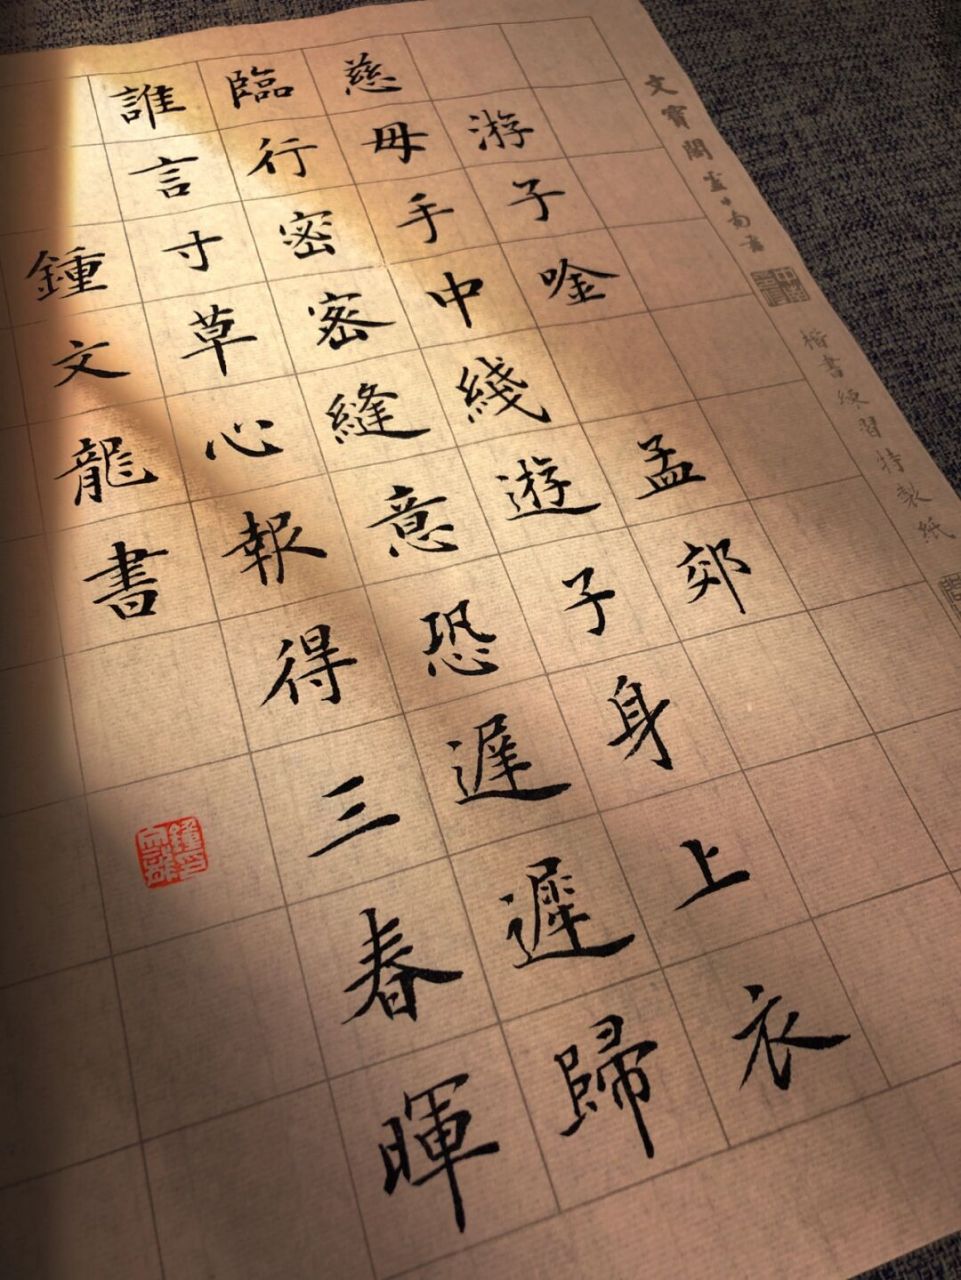 文寶閣
楷書練習特製紙
游子唫 孟郊
慈母手中綫遊子身上衣
臨行密密縫意恐遲遲歸
誰言寸草心報得三春暉
鍾文龍書